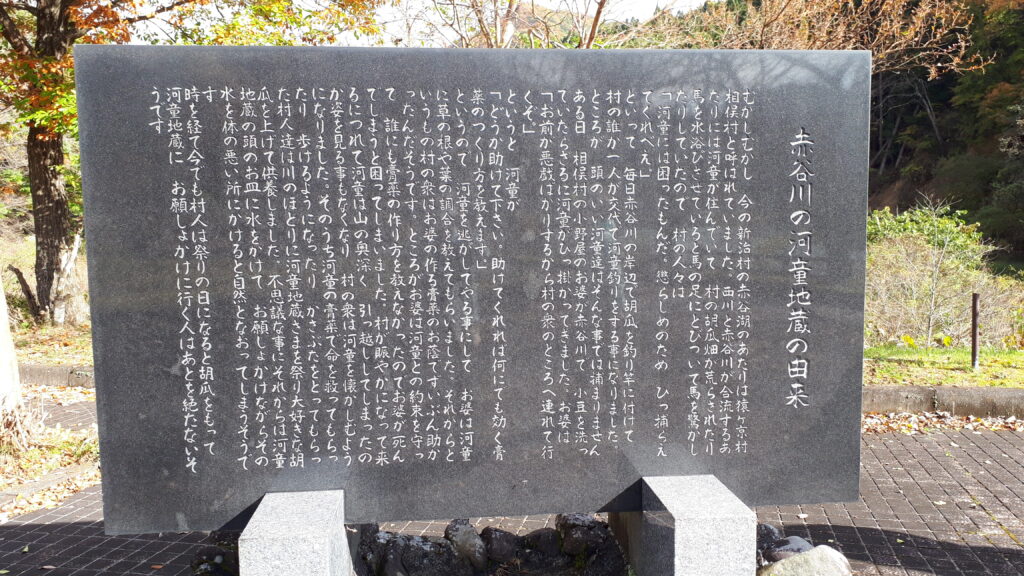 赤谷川の河童地蔵の由来
むかしむかし 今の新治村の赤谷湖のあたりは猿ヶ京村
相俣村と呼ばれていました。西川と赤谷川が合流するあ
たりには河童が住んでいて 村の胡瓜畑が荒らされたり
馬を水浴びさせていると馬の足にとびついて馬を驚かし
たりしていたので 村の人々は
「河童には困ったもんだ。懲らしめのため ひっ捕らえ
てくれべえ」
といって 毎日赤谷川の岸辺で胡瓜を釣り竿に付けて
村の誰か一人が交代で河童釣りをする事になりました。
ところが 頭のいい河童達はそんな事では捕まりません
ある日 相俣村の小野屋のお婆が赤谷川で 小豆を洗っ
ていたらざるに河童がひっ掛かってきました。お婆は
「お前が悪戯ばかりするから村の衆のところへ連れて行
くぞ」
というと 河童が
「どうか助けて下さい。助けてくれれば何にでも効く膏
薬のつくり方を教えます」
というので 河童を逃がしてやる事にして お婆は河童
に草の根や葉の調合を教えてもらいました。それからと
いうもの村の衆はお婆の作る膏薬のお蔭で ずいぶん助か
ったんだそうです。ところがお婆は河童との約束を守っ
て 誰にも膏薬の作り方を教えなかったのでお婆が死ん
でしまうと困ってしまいました。村が賑やかになって来
るにつれて河童は山の奥深く 引っ越ししてしまったの
か姿を見る事もなくなり 村の衆は河童を懐かしむよう
になりました。そのうち河童の膏薬で命を救ってもらっ
たり 歩けるようになったり かさぶたをとってもらっ
た村人達は川のほとりに河童地蔵さまを祭り大好きな胡
瓜を上げて供養しました 不思議な事にそれからは河童
地蔵の頭のお皿に水をかけて お願しょかけながらその
水を体の悪い所にかけると自然となおってしまうそうで
す
時を経て今でも村人は祭りの日になると胡瓜をもって
河童地蔵に お願しょかけに行く人はあとを絶たないそ
うです